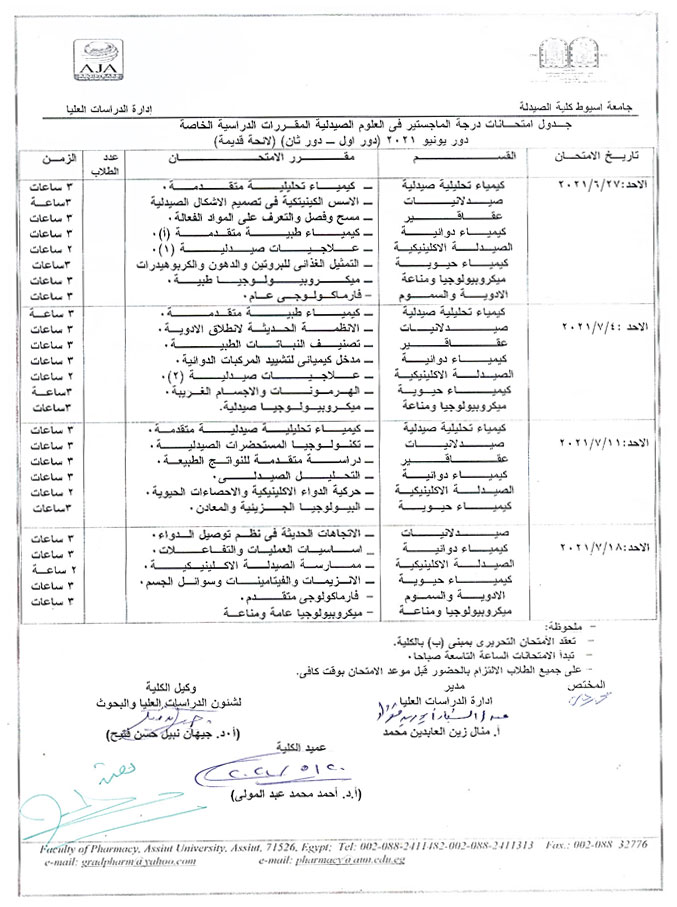 AJA
جامعة اسيوط كلية الصيدلة
إدارة الدراسات العليا
جدول امتحانات درجة الماجستير فى العلوم الصيدلية المقررات الدراسية الخاصة
دور يونيو ٢٠٢١ (دور اول – دور ثان) (لائحة قديمة)
تاريخ الامتحان القسم مقرر الامتحان عدد الطلاب الزمن
الاحد:٢٠٢١/٦/٢٧ كيمياء تحليلية صيدلية – كيمياء تحليلية متقدمة. ٣ ساعات
صيدلانيات – الاسس الكينيتكية فى تصميم الاشكال الصيدلية ٣ ساعة
عقاقير – مسح وفصل والتعرف على المواد الفعالة. ٣ ساعات
كيمياء دوائية – كيمياء طبية متقدمة (أ). ٣ ساعات
الصيدلة الاكلينيكية – علاجيات صيدلية (١). ٢ ساعات
كيمياء حيوية – التمثيل الغذائى للبروتين والدهون والكربوهيدرات ٣ساعات
ميكروبيولوجيا ومناعة – ميكروبيولوجيا طبية. ٣ ساعات
الادوية والسموم – فارماكولوجى عام. ٣ ساعات
الاحد :٢٠٢١/٧/٤ كيمياء تحليلية صيدلية – كيمياء طبية متقدمة. ٣ ساعة
صيدلانيات – الانظمة الحديثة لانطلاق الادوية. ٣ ساعات
عقاقير – تصنيف النباتات الطبية. ٣ ساعات
كيمياء دوائية – مدخل كيميائى لتشييد المركبات الدوائية. ٣ ساعات
الصيدلة الاكلينيكية – علاجيات صيدلية (٢). ٢ ساعات
كيمياء حيوية – الهرمونات والاجسام الغريبة. ٣ساعة
ميكروبيولوجيا ومناعة – ميكروبيولوجيا صيدلية. ٣ساعات
الاحد:٢٠٢١/٧/١١ كيمياء تحليلية صيدلية – كيمياء تحليلية صيدلية متقدمة. ٣ ساعات
صيدلانيات – تكنولوجيا المستحضرات الصيدلية ٣ ساعات
عقاقير – دراسة متقدمة للنواتج الطبيعة. ٣ ساعات
كيمياء دوائية – التحليل الصيدلى. ٣ ساعات
الصيدلة الاكلينيكية – حركية الدواء الاكلينيكية والاحصاءات الحيوية. ٢ ساعات
كيمياء حيوية – البيولوجيا الجزيئية والمعادن. ٣ساعات
الاحد:٢٠٢١/٧/١٨ صيدلانيات – الاتجاهات الحديثة فى نظم توصيل الدواء. ٣ ساعات
كيمياء دوائية – اساسيات العمليات والتفاعلات. ٣ ساعات
الصيدلة الاكلينيكية – ممارسة الصيدلة الاكلينيكية. ٢ ساعة
كيمياء حيوية – الانزيمات والفيتامينات وسوائل الجسم. ٣ ساعات
الادوية والسموم – فارماكولوجى متقدم. ٣ ساعات
ميكروبيولوجيا ومناعة – ميكروبيولوجيا عامة ومناعة
– ملحوظة:
– تعقد الأمتحان التحريرى بمبنى (ب) بالكلية.
– تبدأ الامتحانات الساعة التاسعة صباحا.
– على جميع الطلاب الالتزام بالحضور قبل موعد الامتحان بوقت كافى.
المختص مدير وكيل الكلية
إدارة الدراسات العليا لشئون الدراسات العليا والبحوث
أ. منال زين العابدين محمد (أ.د. جيهان نبيل حسن فتيح)
عميد الكلية
(أ.د. أحمد محمد عبد المولى)
Faculty of Pharmacy, Assiut University, Assiut, 71526, Egypt; Tel: 002-088-2411482-002-088-2411313 Fax.: 002-088 32776
e-mail: gradpharm@yahoo.com e-mail: pharmacy@aun.edu.eg